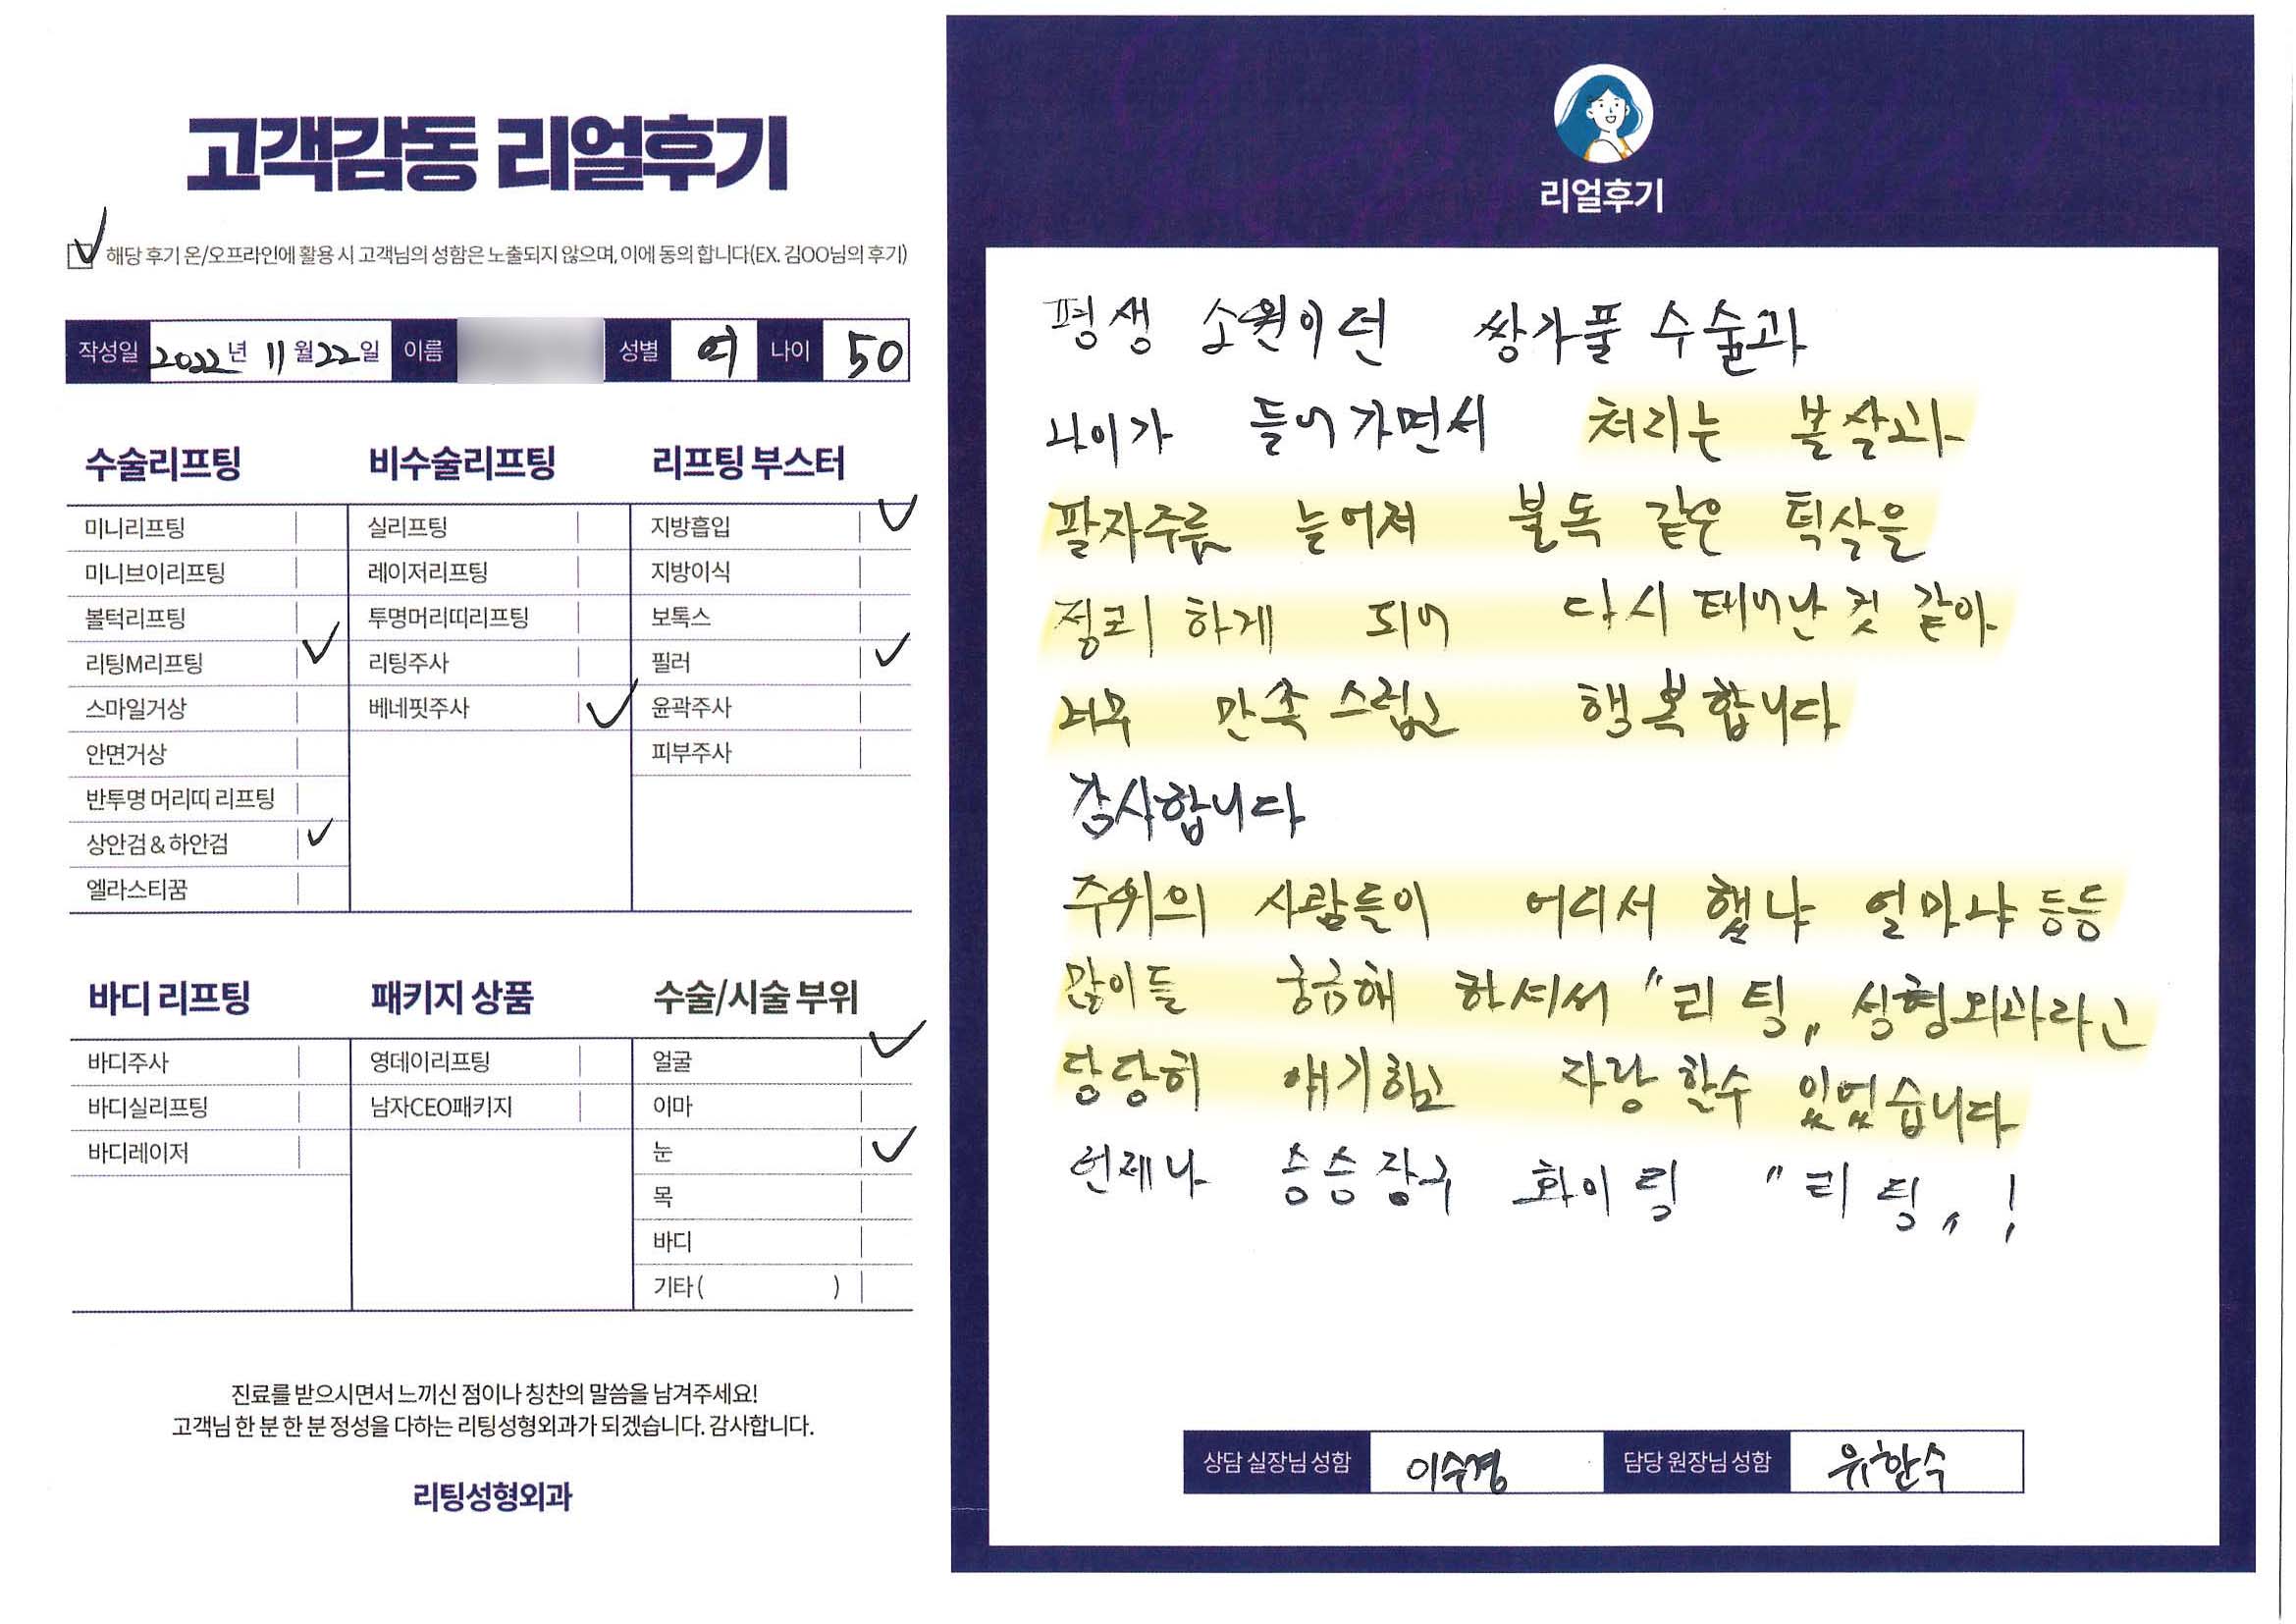 고객감동 리얼후기
해당 후기 온/오프라인에 활용 시 고객님의 성함은 노출되지 않으며, 이에 동의 합니다(EX. 김OO님의 후기)
작성일 2022년 11월 22일 이름 성별 여 나이 50
수술리프팅
미니리프팅
미니브이리프팅
볼턱리프팅
리팅M리프팅
스마일거상
안면거상
반투명 머리띠 리프팅
상안검 & 하안검
엘라스티꿈
비수술리프팅
실리프팅
레이저리프팅
투명머리띠리프팅
리팅주사
베네핏주사
리프팅 부스터
지방흡입
지방이식
보톡스
필러
윤곽주사
피부주사
바디 리프팅
바디주사
바디실리프팅
바디레이저
패키지 상품
영데이리프팅
남자CEO패키지
수술/시술 부위
얼굴
이마
눈
목
바디
기타 ( )
진료를 받으시면서 느끼신 점이나 칭찬의 말씀을 남겨주세요!
고객님 한 분 한 분 정성을 다하는 리팅성형외과가 되겠습니다. 감사합니다.
리팅성형외과
리얼후기
평생 소원이던 쌍가풀 수술과
나이가 들어가면서 처리는 볼살과
팔자주름 늘어져 불독 같은 턱살을
정리하게 되어 다시 태어난 것 같아
너무 만족스럽고 행복합니다
감사합니다
주위의 사람들이 어디서 했냐 얼마냐 등등
많이들 궁금해 하셔서 "리팅" 성형외과라고
당당히 얘기하고 자랑할수 있었습니다
언제나 승승장구 화이팅 "리팅"!
상담 실장님 성함 이수경 담당 원장님 성함 유한수